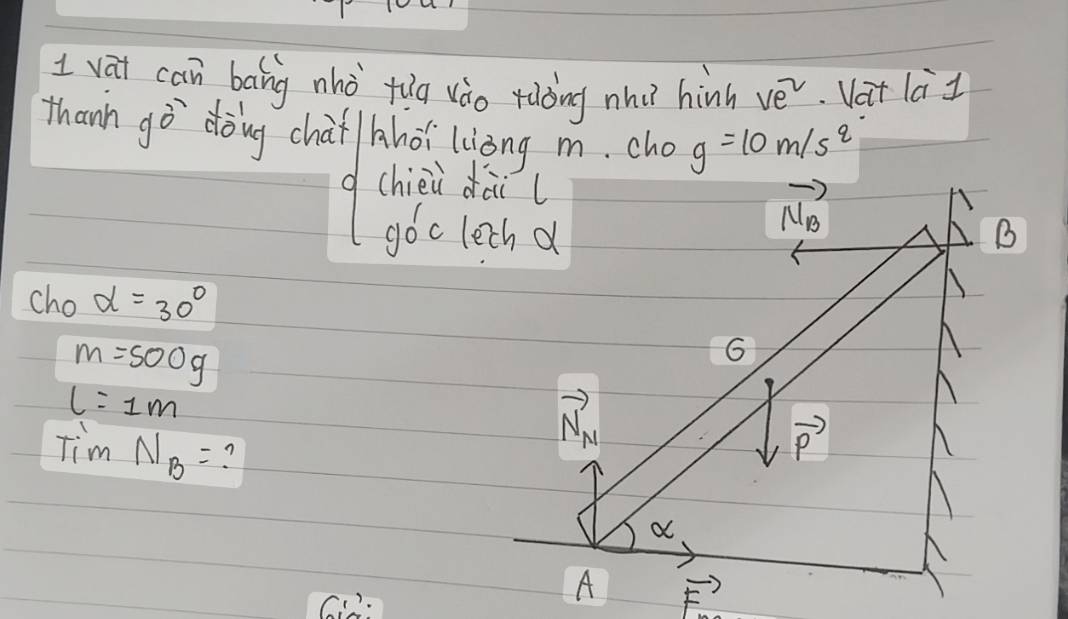 1 vật cân bằng nhờ tựa vào tường như hình vẽ. Vật là 1
thanh gỗ đồng chất khối lượng m. cho g = 10 m/s²
chiều dài l
góc lệch α
N_B
B
cho α = 30°
m = 500g
l = 1m
Tìm N_B = ?
G
N_N
P
α
A
F
Giải: